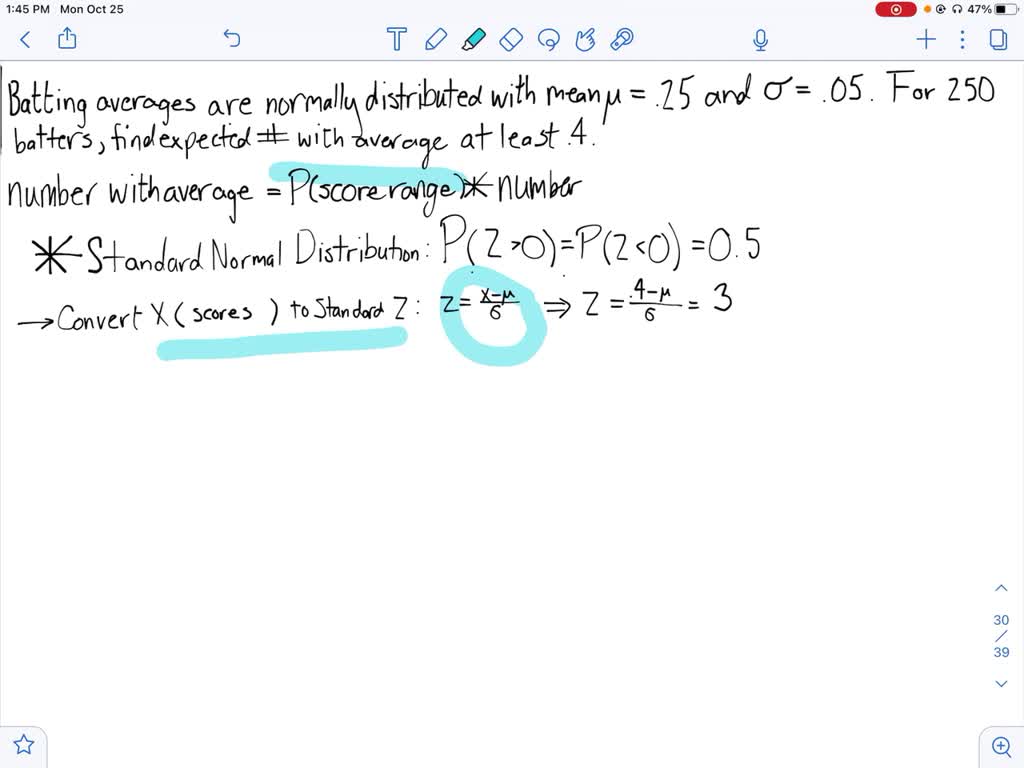 1:45 PM Mon Oct 25 47%
T
Batting averages are normally distributed with mean μ = .25 and σ = .05. For 250
batters, find expected # with average at least .4.
number with average = P(score range) * number
* Standard Normal Distribution: P(Z>0)=P(Z<0)=0.5
→ Convert X (scores) to Standard Z: z= x-μ/σ ⇒ Z = .4-μ/σ = 3
30
/
39